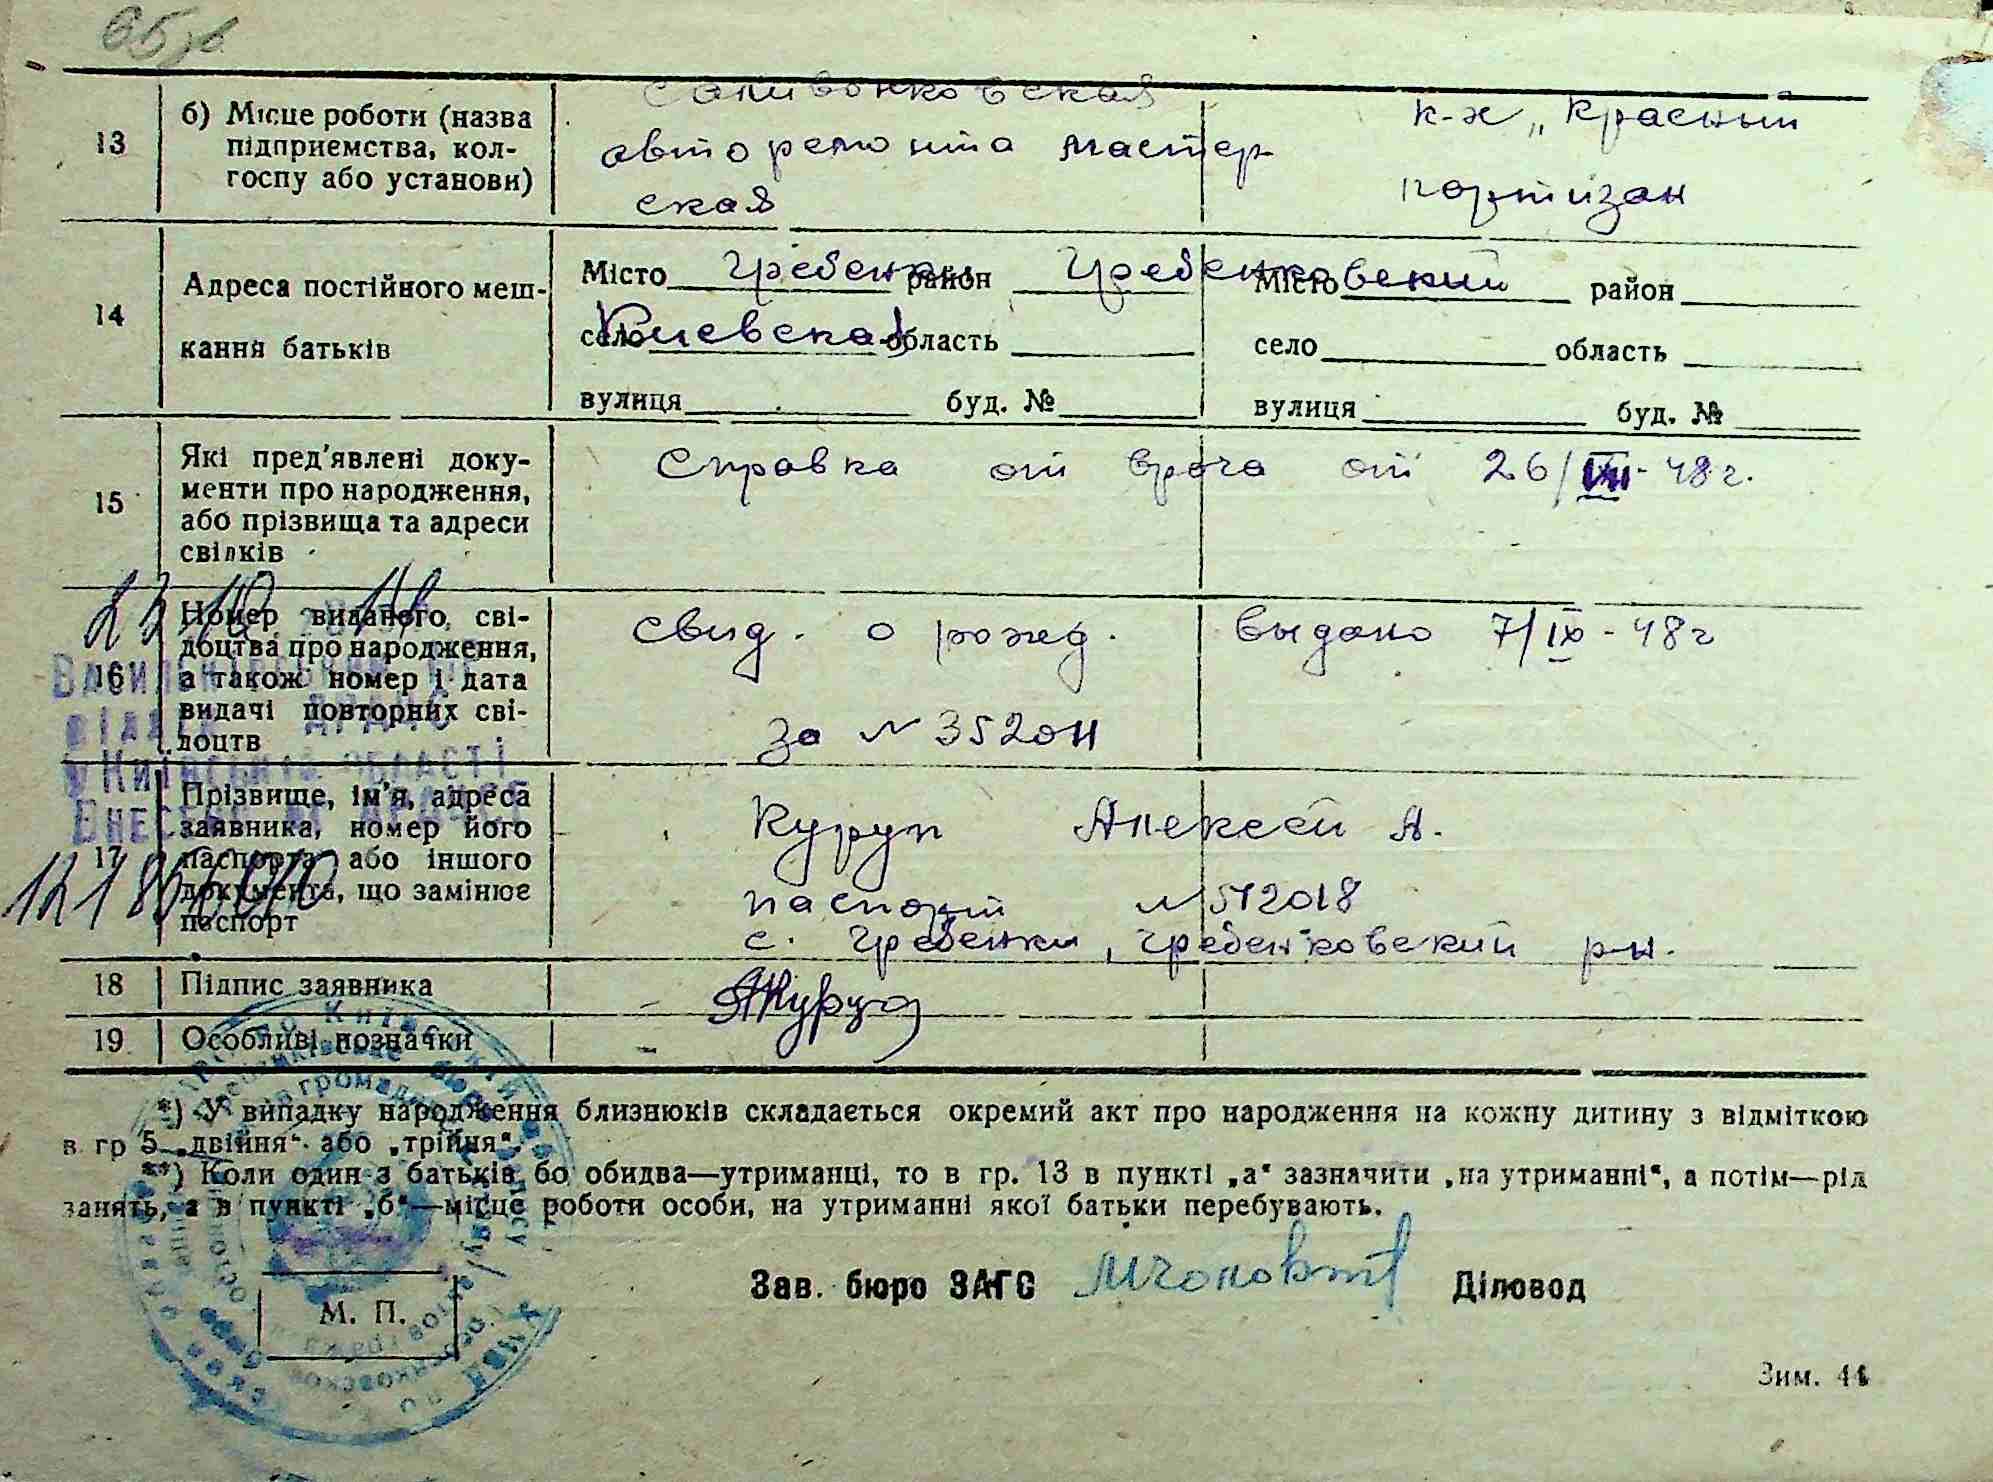 13
б) Місце роботи (назва підприємства, колгоспу або установи)
саливонковская
авторемонта мастер
ская
к-х „Красный
партизан
14
Адреса постійного меш-
кання батьків
Місто Гребенки район Гребенковский
село Киевская область
вулиця буд. №
Місто район
село область
вулиця буд. №
15
Які пред'явлені доку-
менти про народження,
або прізвища та адреси
свідків
Справка от врача от 26/VIII-48г.
16
Номер виданого сві-
доцтва про народження,
а також номер і дата
видачі повторних сві-
доцтв
свид. о рожд. выдано 7/IX-48г
за № 352011
17
Прізвище, ім'я, адреса
заявника, номер його
паспорта або іншого
документа, що замінює
паспорт
Куруп Алексей А.
паспорт № 572018
с. Гребенки, Гребенковский р-н.
18
Підпис заявника
19
Особливі позначки
*) У випадку народження близнюків складається окремий акт про народження на кожну дитину з відміткою
в гр 5 „двійня“ або „трійня“.
**) Коли один з батьків бо обидва—утриманці, то в гр. 13 в пункті „а“ зазначити „на утриманні“, а потім—рід
занять, а в пункті „б“—місце роботи особи, на утриманні якої батьки перебувають.
Зав. бюро ЗАГС
Діловод
М. П.
Зим. 44